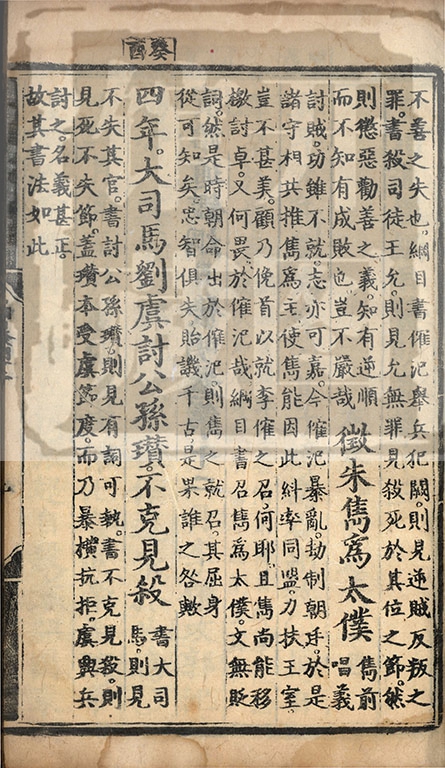 癸酉
不善之失也綱目書傕汜舉兵犯闕則見逆賊反叛之
罪書殺司徒王允則見允無罪見殺死於其位之節然
則懲惡勸善之義知有逆順
而不知有成敗也豈不嚴哉
徵朱雋爲太僕
雋前
唱義
討賊功雖不就志亦可嘉今傕汜暴亂劫制朝廷於是
諸守相共推雋爲主使雋能因此糾率同盟力扶王室
豈不甚美顧乃俛首以就李傕之召何耶且雋尚能移
檄討卓又何畏於傕汜哉綱目書召雋爲太僕文無貶
詞然是時朝命出於傕汜則雋之就召其屈身
從可知矣忠智俱失貽譏千古是果誰之咎歟
四年大司馬劉虞討公孫瓚不克見殺
書大司
馬則見
不失其官書討公孫瓚則見有詞可執書不克見殺則
見死不失節蓋瓚本受虞節度而乃暴橫抗拒虞興兵
討之名義甚正
故其書法如此